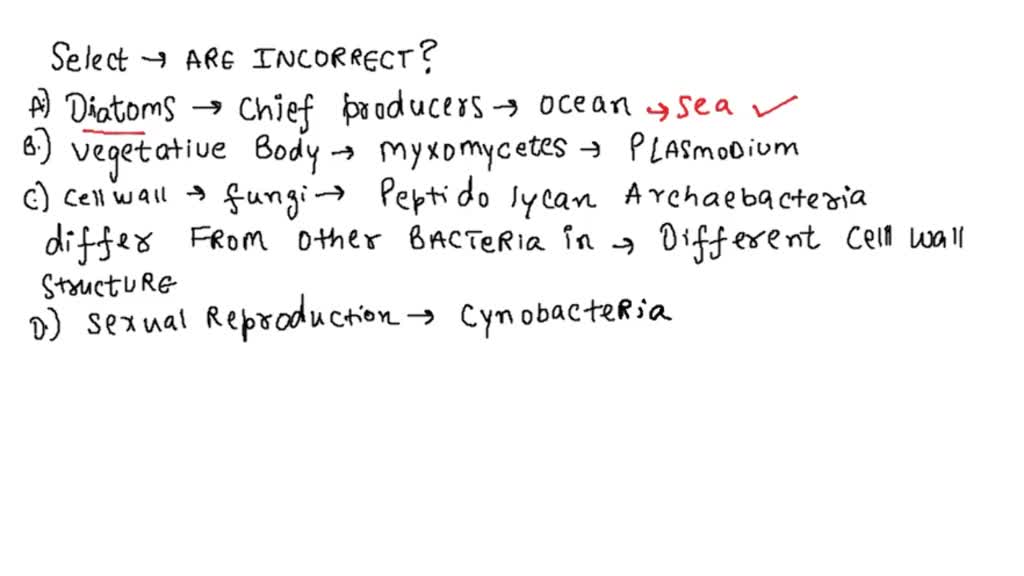 Select → ARE INCORRECT?
A) Diatoms → Chief producers → ocean → sea ✓
B.) Vegetative Body → myxomycetes → PLASMODIUM
C) Cell wall → fungi → Peptido lycan Archaebacteria
differ FROM other BACTERIA in → Different cell wall
structURE
D.) Sexual Reproduction → Cynobacteria